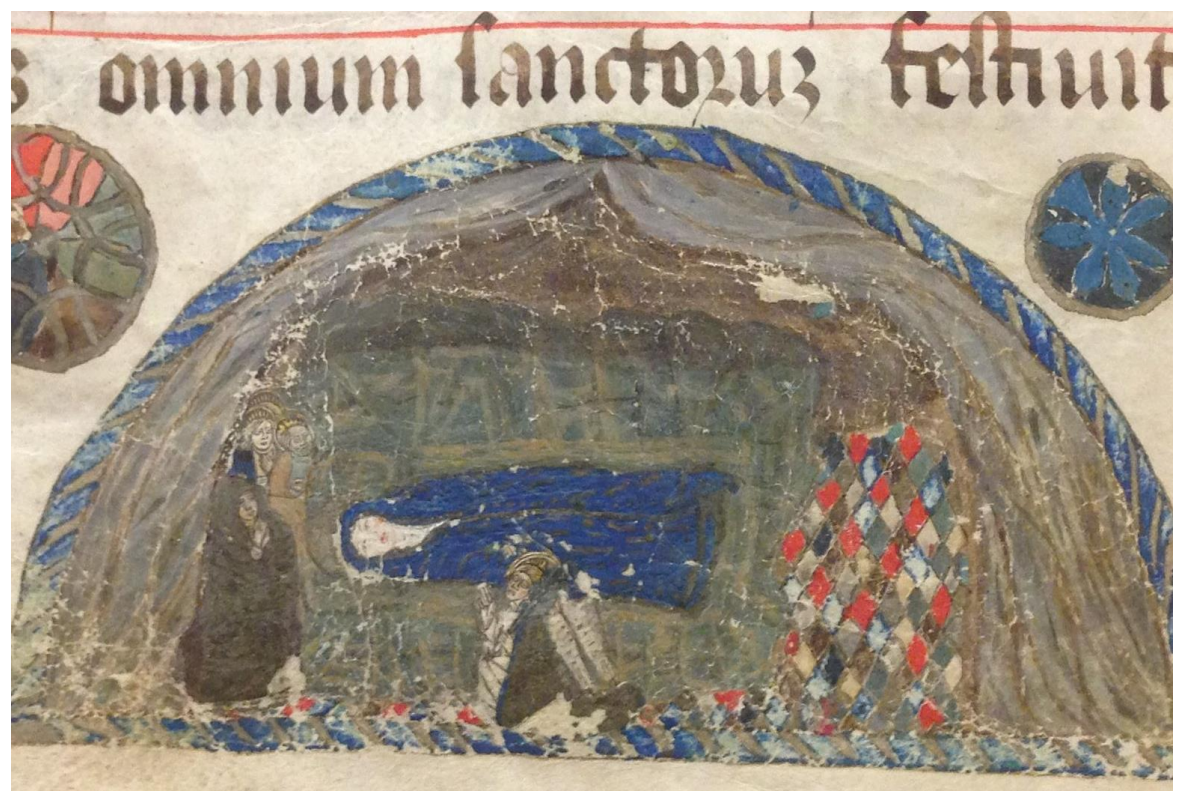 s omnium sanctoruz festiuit